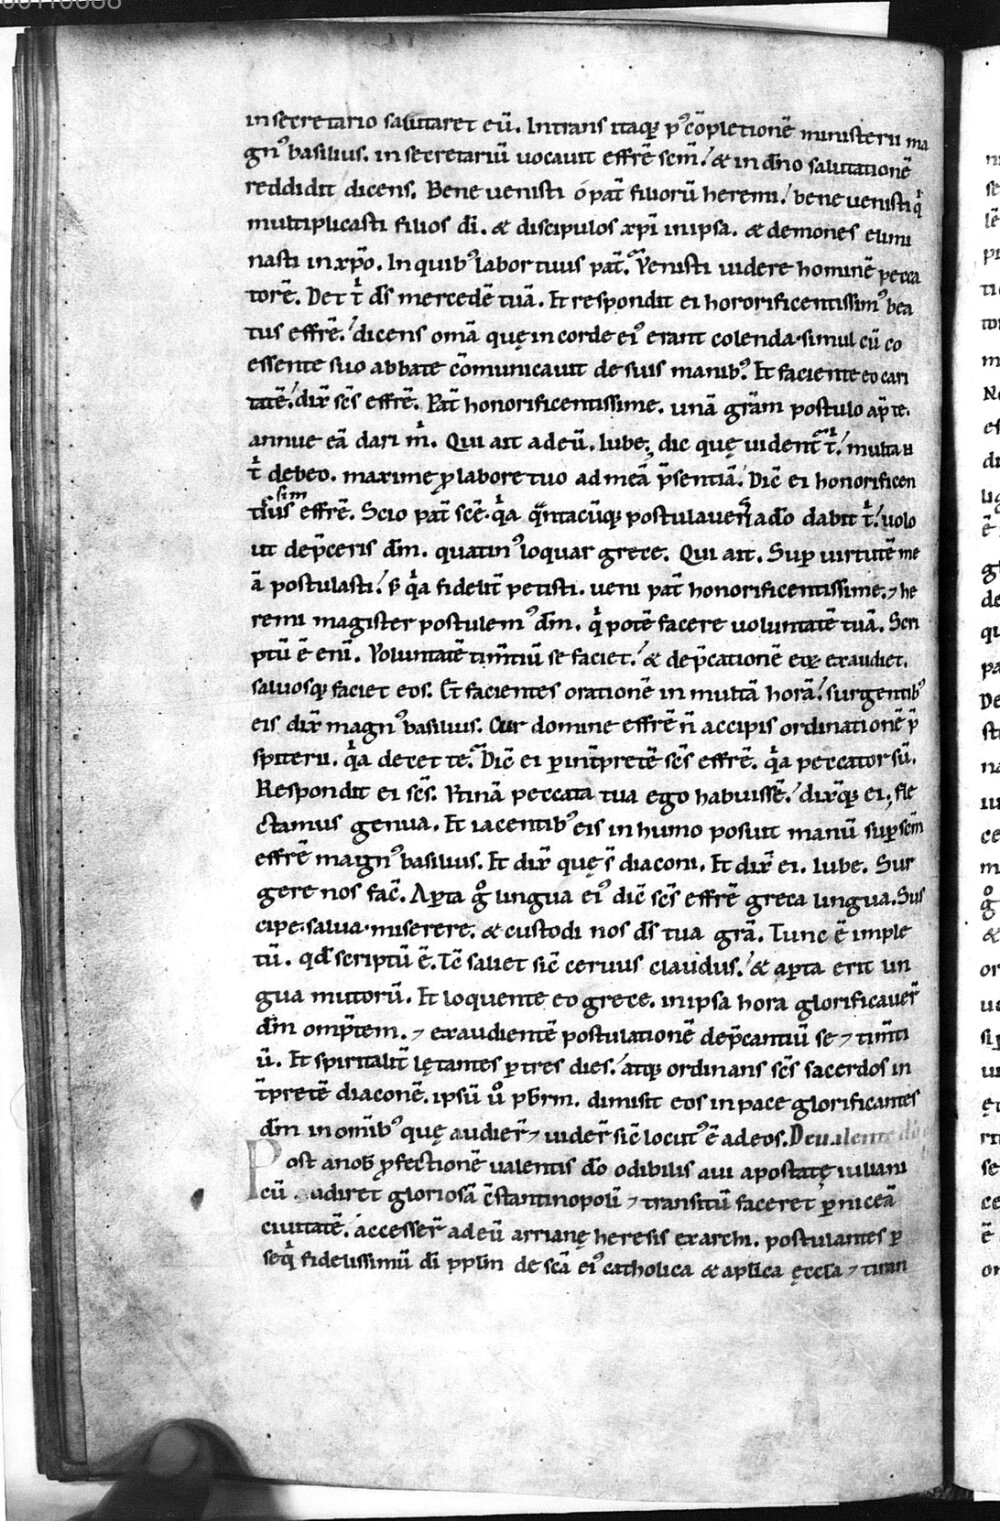 in secretario salutaret eū. Intrans itaq; p᾽ cōpletionē ministerii ma
gn᾽ basilius. in secretariū uocauit effrē scm̄. & in dn̄o salutationē
reddidit dicens. Bene uenisti o pat̄ filiorū heremi. bene uenisti qͥ
multiplicasti filios dī. & discipulos xp̄i in ipsa. & demones elimi
nasti in xp̄o. In quib᾽ labor tuus pat̄. Venisti uidere hominē pecca
torē. Det t̄ ds̄ mercedē tuā. Et respondit ei hororificentissim᾽ bea
tus effrē. dicens omā quę in corde ei᾽ erant colenda. simul cū co
essente suo abbate cōmunicauit de suis manib᾽. Et faciente eo cari
tatē. dix̄ scs̄ effrē. Pat̄ honorificentissime. unā grām postulo ap̄ te.
annue eā dari m̄. Qui ait ad eū. Iube, dic quę uident̄ t̄. multa u
t̄ debeo. maxime ꝓ labore tuo ad meā p̄sentiā. Dic̄ ei honorificen
tissim᾽ effrē. Scio pat̄ scē. qͥa qͣntacūq; postulauer̄ a dō dabit t̄. uolo
ut dep̄ceris dm̄. quatin᾽ loquar grece. Qui ait. Sup̄ uirtutē me
ā postulasti. s̄ qͥa fidelit̄ petisti. ueni pat̄ honorificentissime. ⁊ he
remi magister postulem᾽ dm̄. qͥ potē facere uoluntatē tuā. Scri
ptū ē enī. Voluntatē timtīū se faciet. & dep̄cationē eoꝝ exaudiet.
saluosq; faciet eos. Et facientes orationē in multā horā. surgentib᾽
eis dix̄ magn᾽ basilius. Cur domine effrē n̄ accipis ordinationē p̄
spiterii. qͥa decet te. Dic̄ ei p̄ int̄pretē scs̄ effrē. qͥa peccator sū.
Respondit ei scs̄. Vtinā peccata tua ego habuissē. dixq; ei. fle
ctamus genua. Et iacentib᾽ eis in humo posuit manū sup̄ scm̄
effrē maign᾽ basilius. Et dix̄ que s̄ diaconi. Et dix̄ ei. Iube. Sur
gere nos fac̄. Apta gͦ lingua ei᾽ dic̄ scs̄ effrē greca lingua. Sus
cipe. salua. miserere. & custodi nos ds̄ tua grā. Tunc ē imple
tū. qd̄ scriptū ē. Tc̄ saliet sic̄ ceruus claudus. & apta erit lin
gua mutorū. Et loquente eo grece. in ipsa hora glorificauer̄
dm̄ omp̄tem. ⁊ exaudientē postulationē dep̄cantiū se ⁊ timti
ū. Et spiritalit̄ lętantes p̄ tres dies. atq; ordinans scs̄ sacerdos in
t̄pretē diaconē. ipsū u᾽ pbr̄m. dimisit eos in pace glorificantes
dm̄ in omīb᾽ quę audier̄ ⁊ uider̄ sic̄ locut᾽ ē ad eos. De ualente
Post anob̄ ꝓfectionē ualentis dō odibilis aui apostatę iuliani
cū adiret gloriosā c̄stantinopoli ⁊ transitū faceret p̄ niceā
ciuitatē. accesser̄ ad eū arrianę heresis exarchi. postulantes p̄
seqͥ fidelissimū dī pplm̄ de scā ei᾽ catholica & aplīca ęccla ⁊ tiran